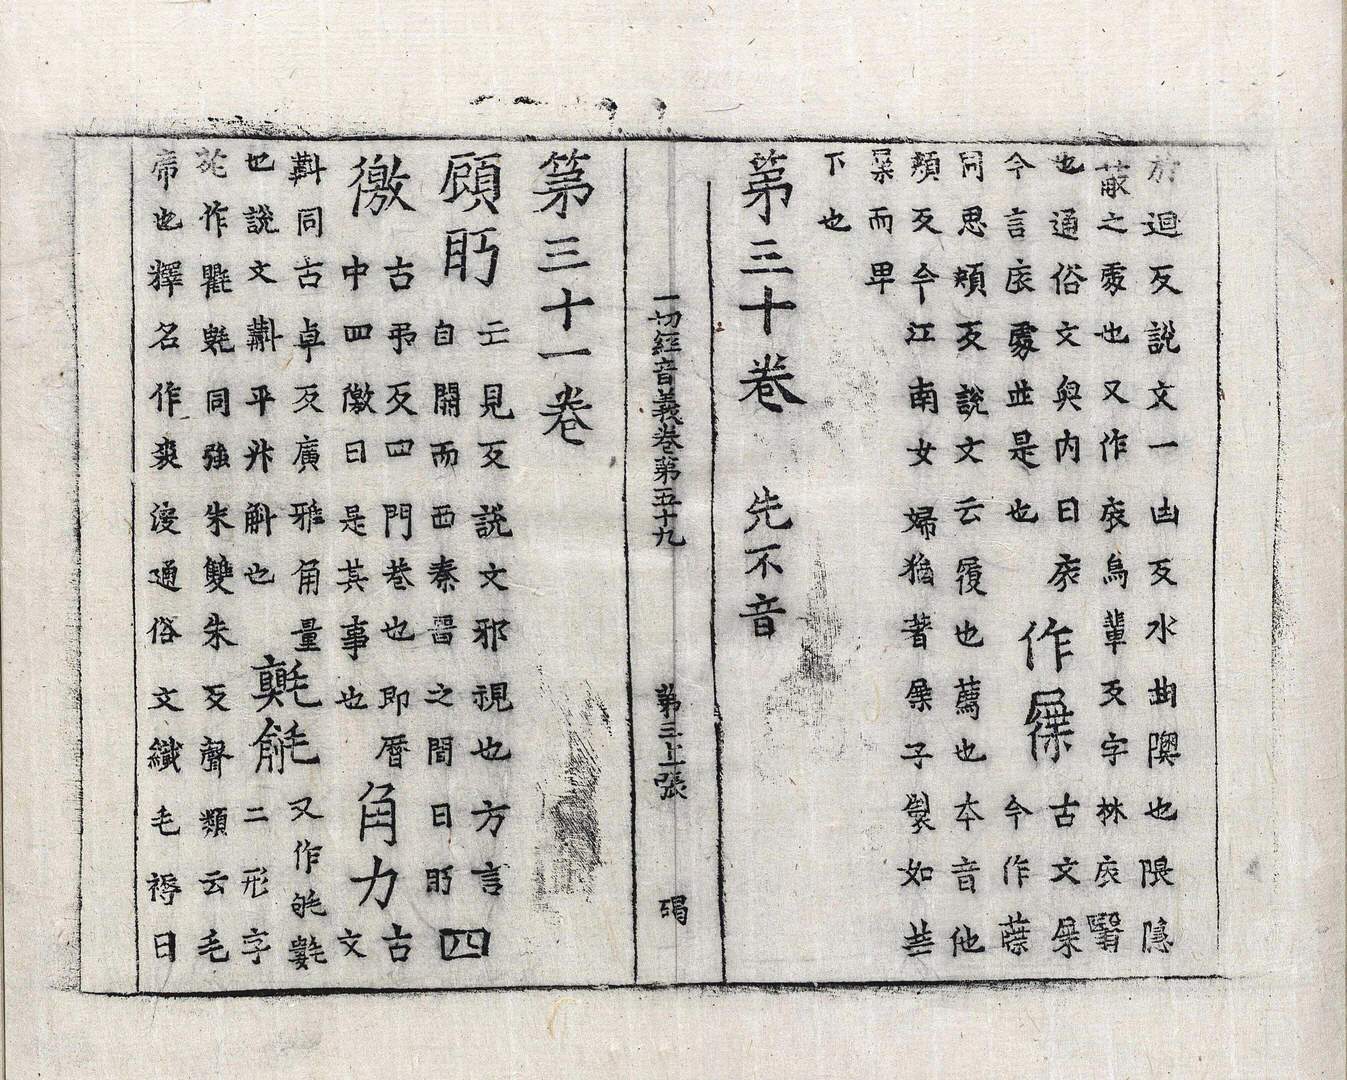 於迴反說文一凷反水曲隩也隈隱
蔽之處也又作㡯烏輩反字林㡯翳
也通俗文奥内曰㡯
作屧
古文屧
今言㡯處並是也
今作䕈
同思頰反說文云履也薦也本音他
頰反今江南女婦猶著屧子製如芒
屎而卑
下也
第三十卷 先不音
一切經音義卷第五十九 第三十張 碣
第三十一卷
顧眄
亡見反說文邪視也方言
自關而西秦晉之間曰眄
四
徼
古弔反四門巷也即曆
中四徼曰是其事也
角力
古
文
斠同古卓反廣雅角量
也說文斠平斗斛也
氍毹
又作㲣㲪
二形字
苑作氍氀同強朱雙朱反聲類云毛
席也釋名作裘溲通俗文織毛褥曰